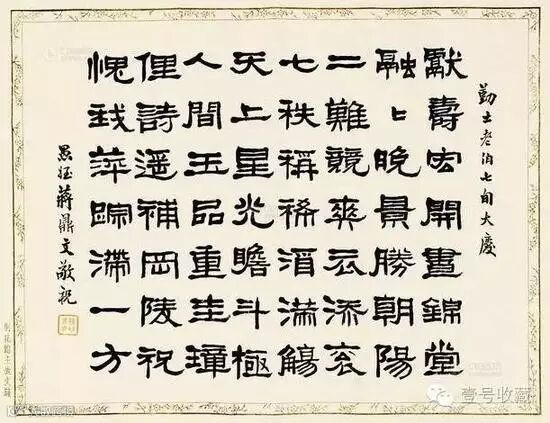 勤士老伯七旬大慶
獻壽宏開晝錦堂
融〻晚景勝朝陽
二難競爽添衮
七秩稱稀酒滿觴
天上星光瞻斗極
人間玉品重圭璋
俚詩遥補岡陵祝
愧我萍踪滯一方
愚侄蔣鼎文敬祝
壹号收藏